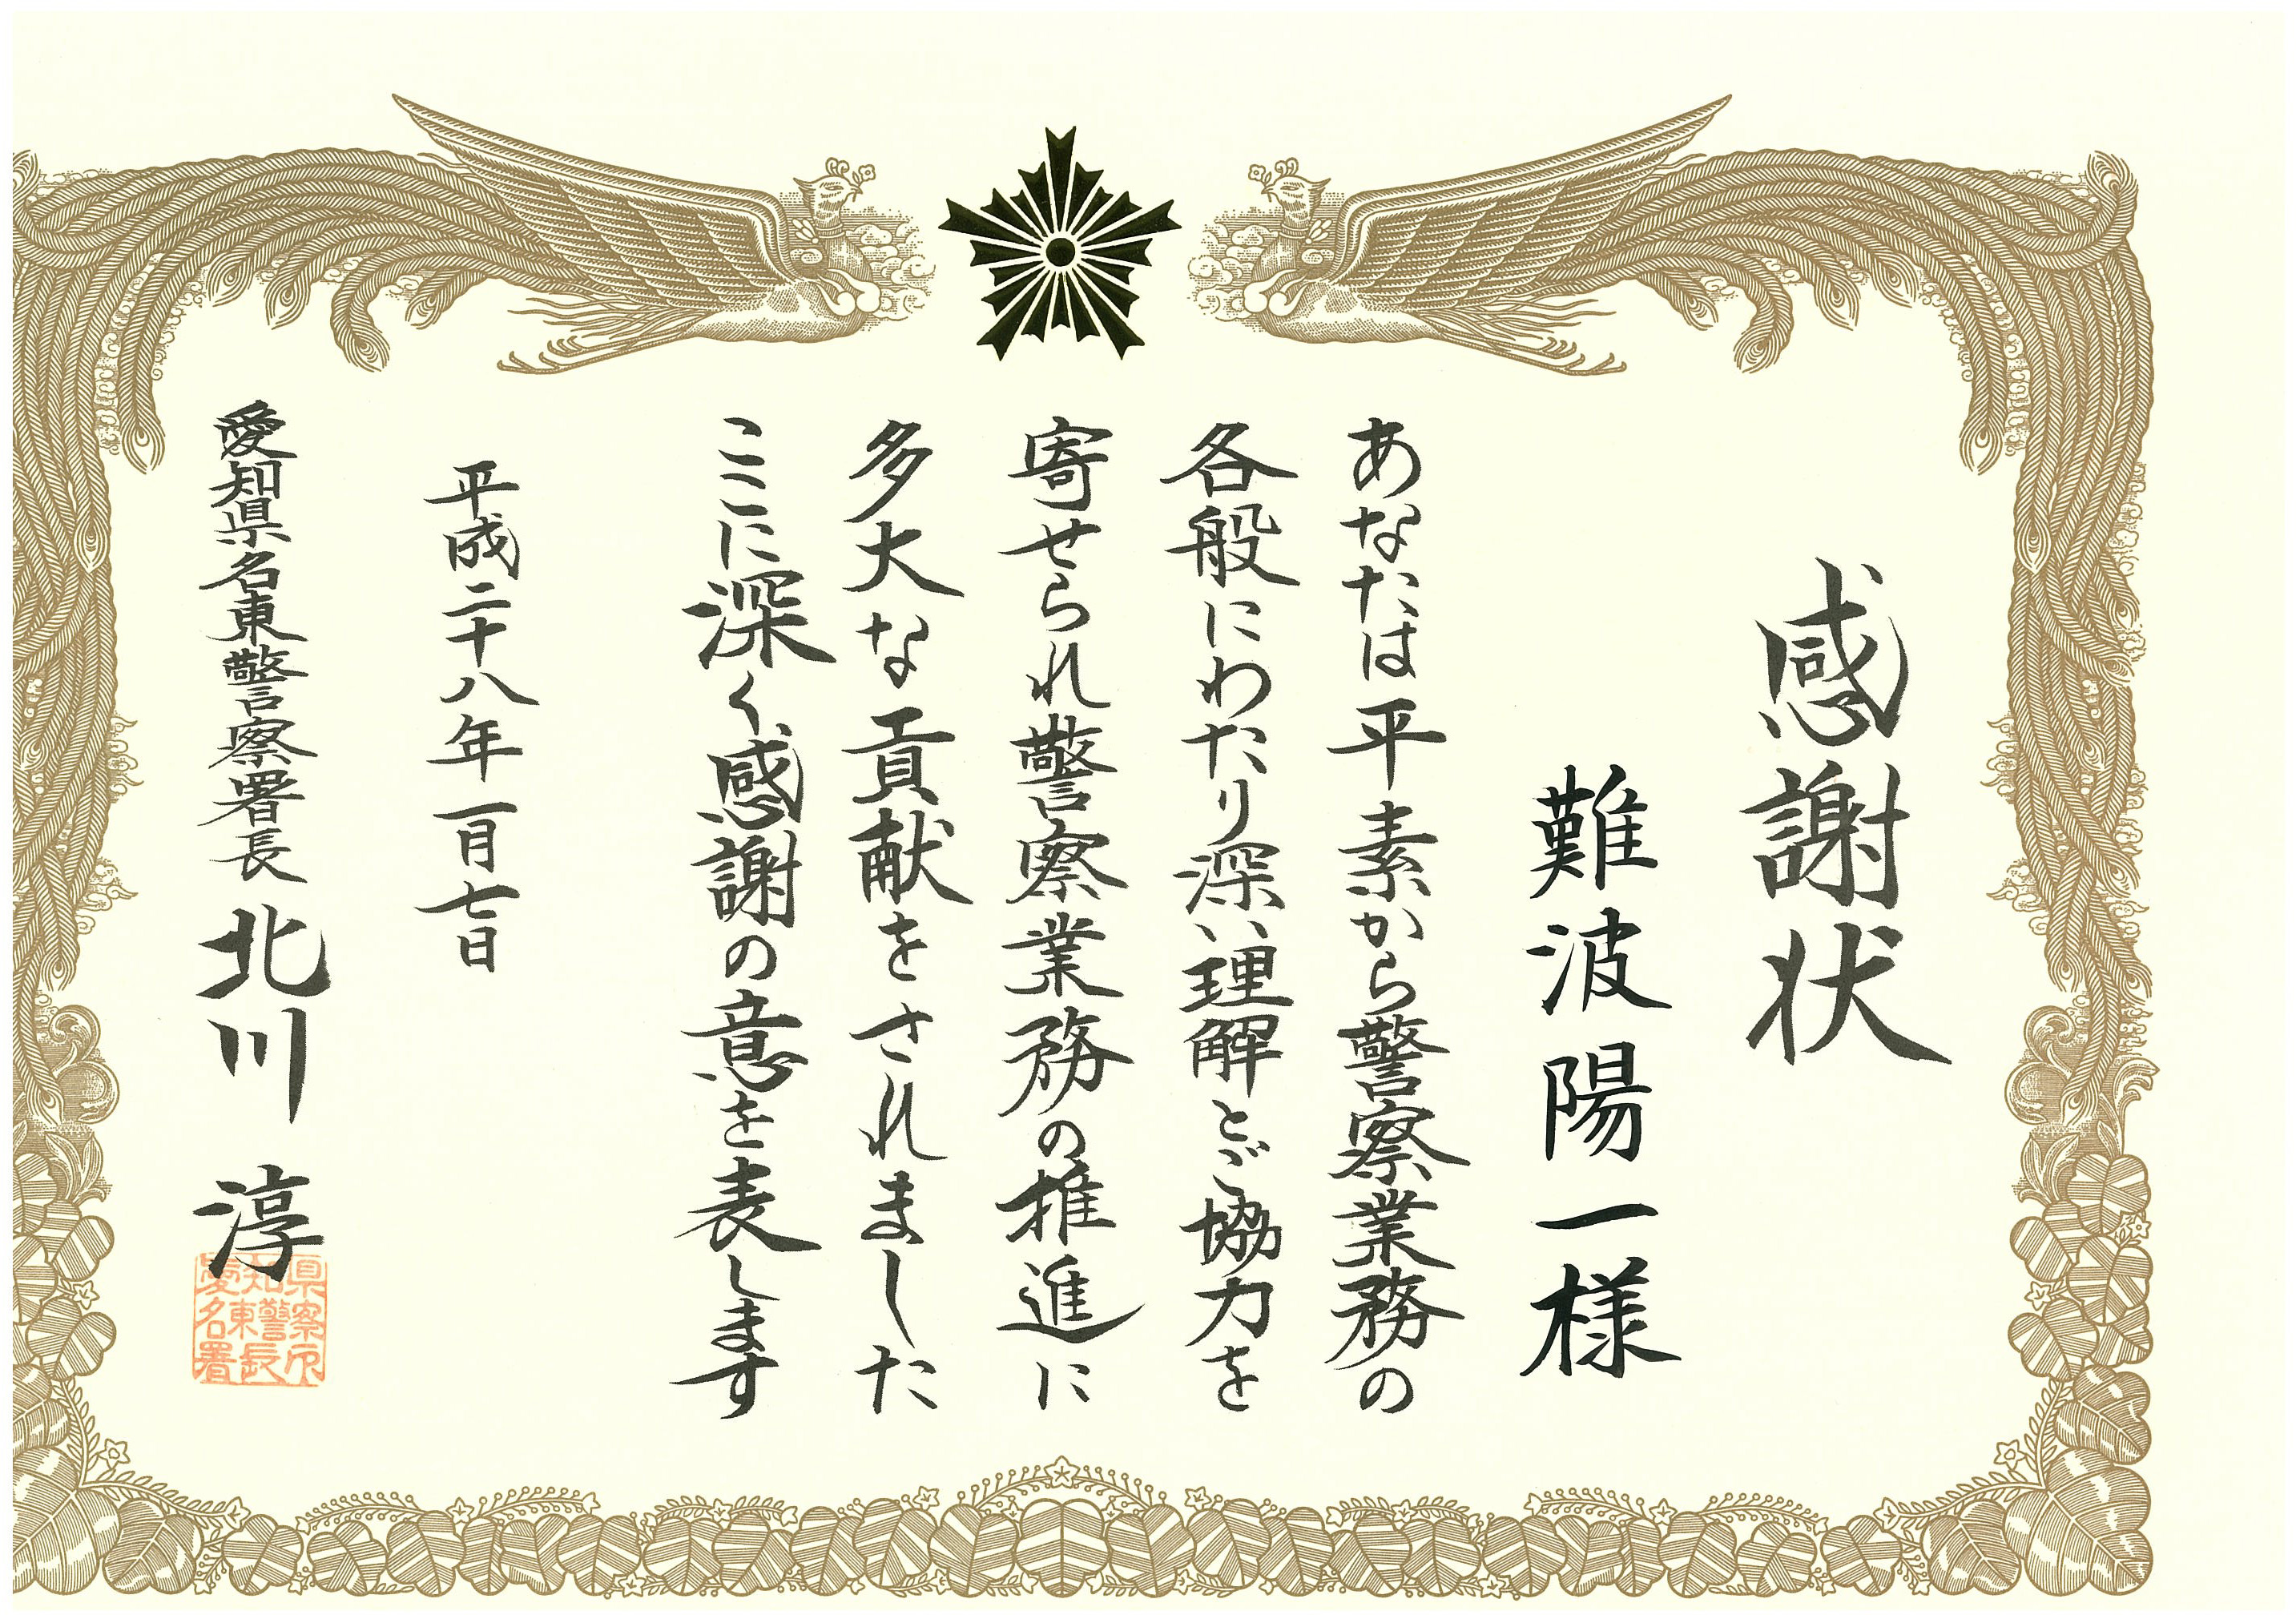 感謝状
難波陽一様
あなたは平素から警察業務の
各般にわたり深い理解とご協力を
寄せられ警察業務の推進に
多大な貢献をされました
ここに深く感謝の意を表します
平成二十八年一月七日
愛知県名東警察署長 北川 淳
県察之
知警長
愛名東署